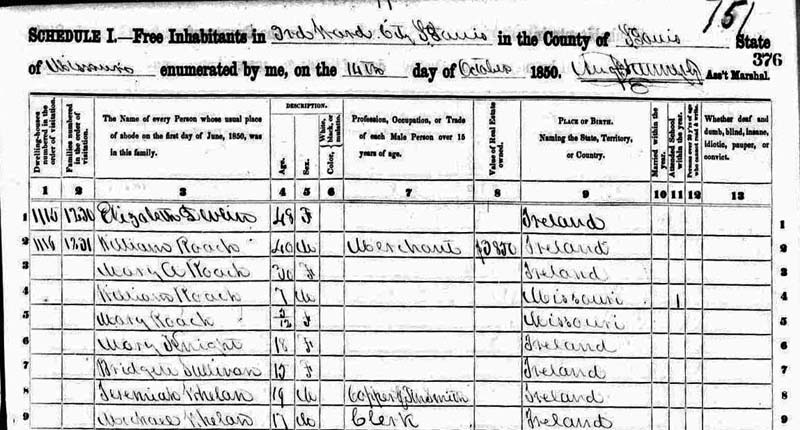 751
SCHEDULE I.—Free Inhabitants in 3rd Ward City St Louis in the County of St Louis State 376
of Missouri enumerated by me, on the 14th day of October 1850. Ass't Marshal.
Dwelling-houses numbered in the order of visitation.
Families numbered in the order of visitation.
The Name of every Person whose usual place of abode on the first day of June, 1850, was in this family.
DESCRIPTION.
Age.
Sex.
Color, White, black, or mulatto.
Profession, Occupation, or Trade of each Male Person over 15 years of age.
Value of Real Estate owned.
PLACE OF BIRTH.
Naming the State, Territory, or Country.
Married within the year.
Attended School within the year.
Persons over 20 y'rs of age who cannot read & write.
Whether deaf and dumb, blind, insane, idiotic, pauper, or convict.
1 2 3 4 5 6 7 8 9 10 11 12 13
1 1115 1230 Elizabeth 48 F Ireland 1
2 1116 1231 William Roach 40 M Merchant Ireland 2
3 Mary A Roach 30 F Ireland 3
4 William Roach 7 M Missouri 1 4
5 Mary Roach 3/12 F Missouri 5
6 Mary Knight 18 F Ireland 6
7 Bridget Sullivan 15 F Ireland 7
8 Jeremiah Whelan 19 M Copper & Tinsmith Ireland 8
9 Michael Whelan 17 M Clerk Ireland 9